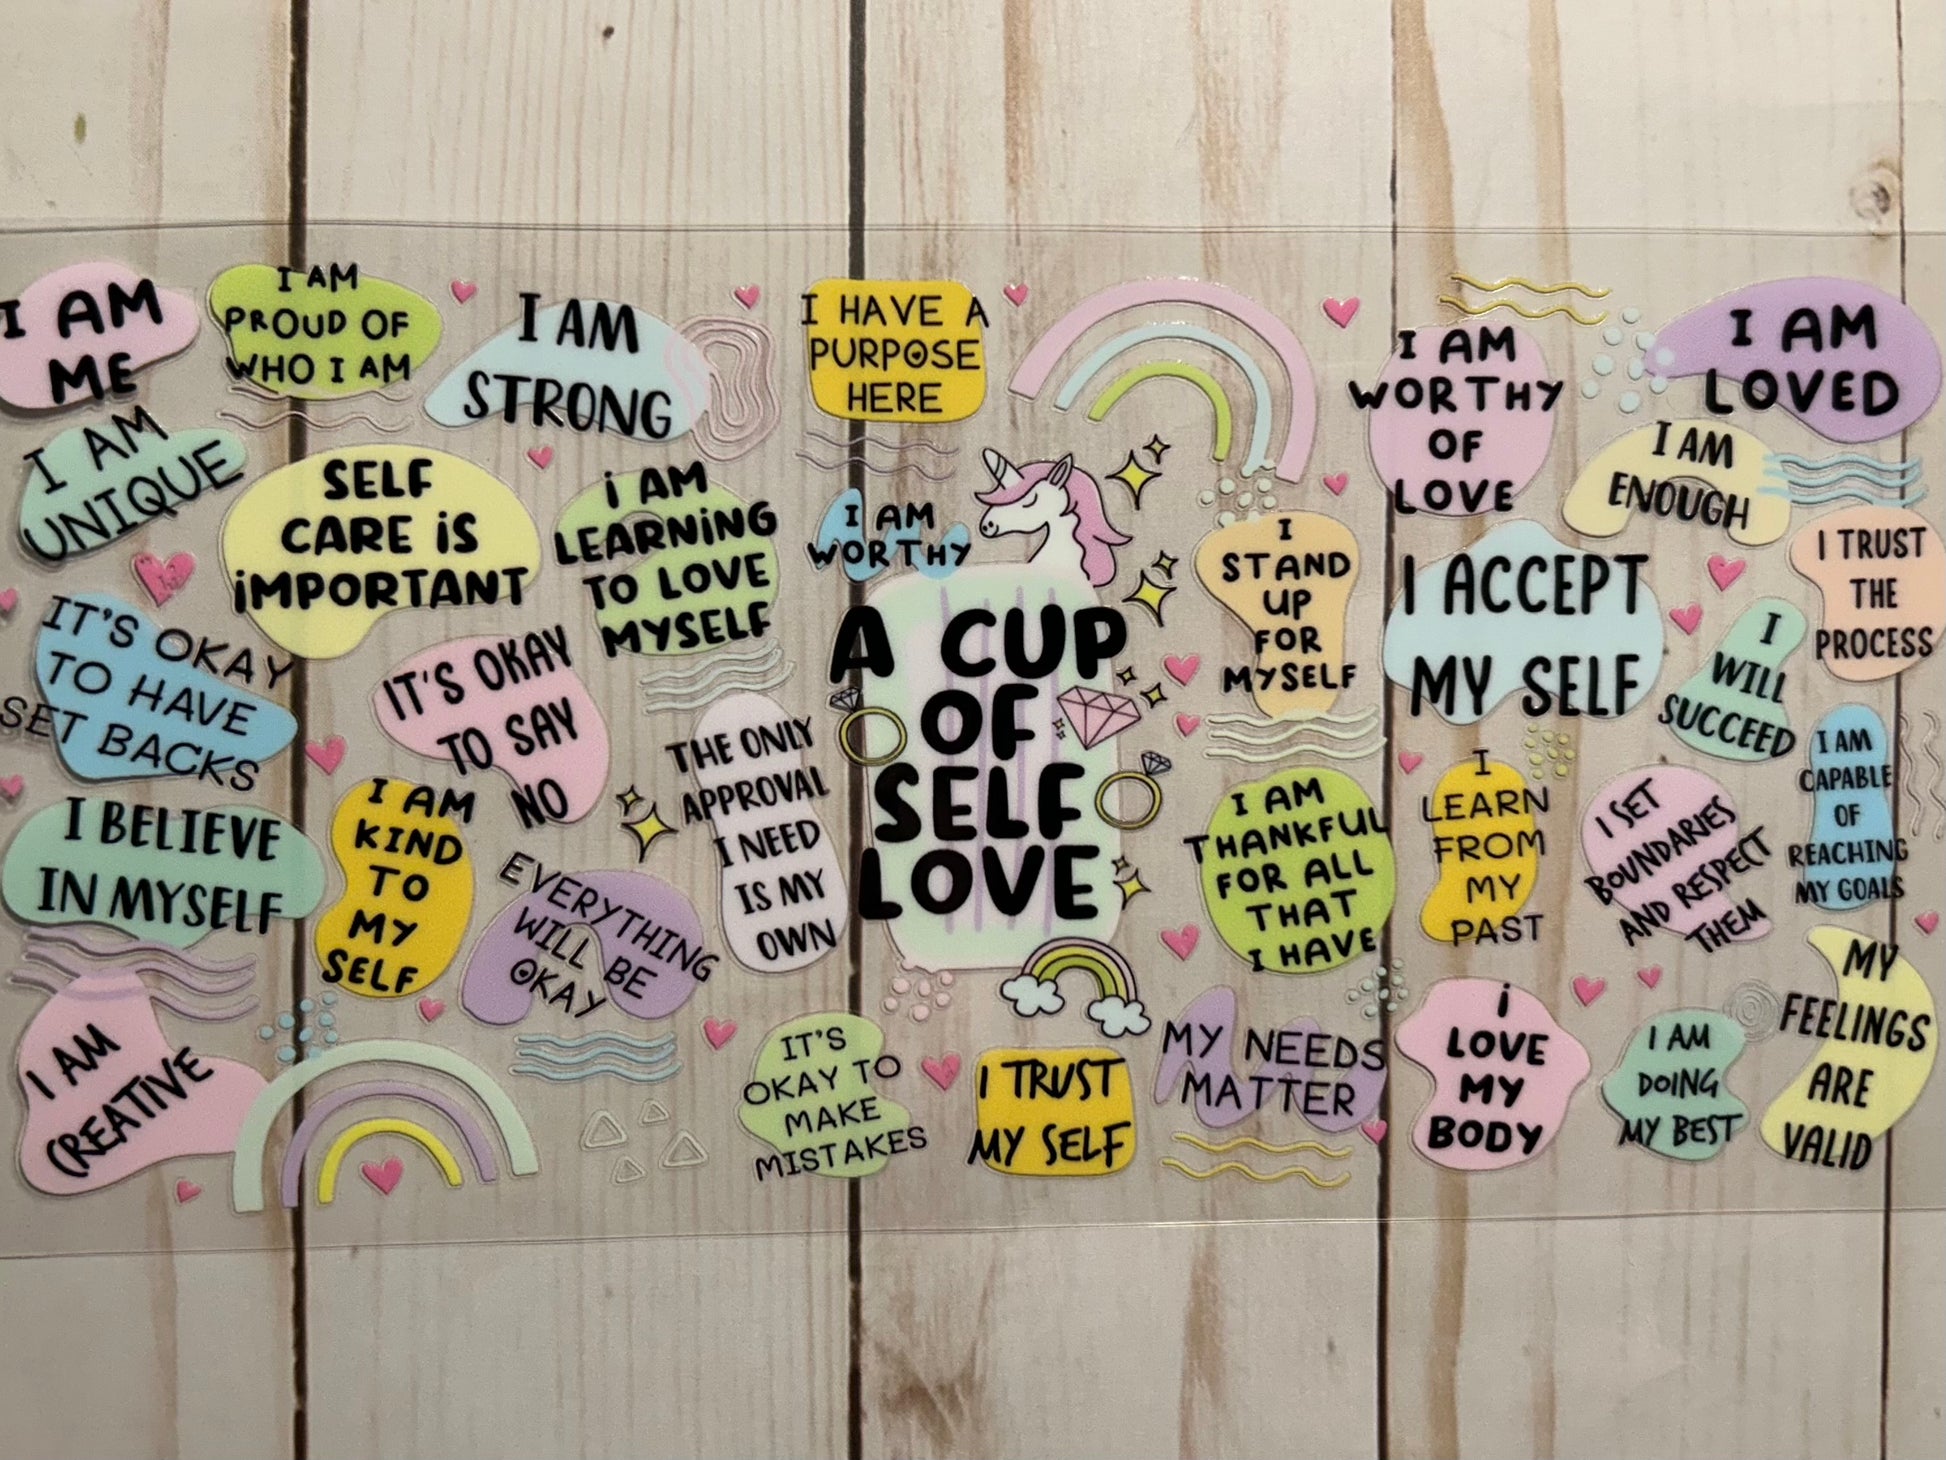 I AM
ME
I AM
PROUD OF
WHO I AM
I AM
STRONG
I HAVE A
PURPOSE
HERE
I AM
WORTHY
OF
LOVE
I AM
LOVED
I AM
UNIQUE
SELF
CARE iS
iMPORTANT
i AM
LEARNiNG
TO LOVE
MYSELF
I AM
WORTHY
I
STAND
UP
FOR
MYSELF
I ACCEPT
MY SELF
I AM
ENOUGH
I TRUST
THE
PROCESS
IT'S OKAY
TO HAVE
SET BACKS
IT'S OKAY
TO SAY
NO
THE ONLY
APPROVAL
I NEED
IS MY
OWN
A CUP
OF
SELF
LOVE
I
WILL
SUCCEED
I BELIEVE
IN MYSELF
I AM
KIND
TO
MY
SELF
EVERYTHING
WILL BE
OKAY
I AM
THANKFUL
FOR ALL
THAT
I HAVE
I
LEARN
FROM
MY
PAST
I SET
BOUNDARIES
AND RESPECT
THEM
I AM
CAPABLE
OF
REACHING
MY GOALS
I AM
CREATIVE
IT'S
OKAY TO
MAKE
MISTAKES
I TRUST
MY SELF
MY NEEDS
MATTER
i
LOVE
MY
BODY
I AM
DOING
MY BEST
MY
FEELINGS
ARE
VALID